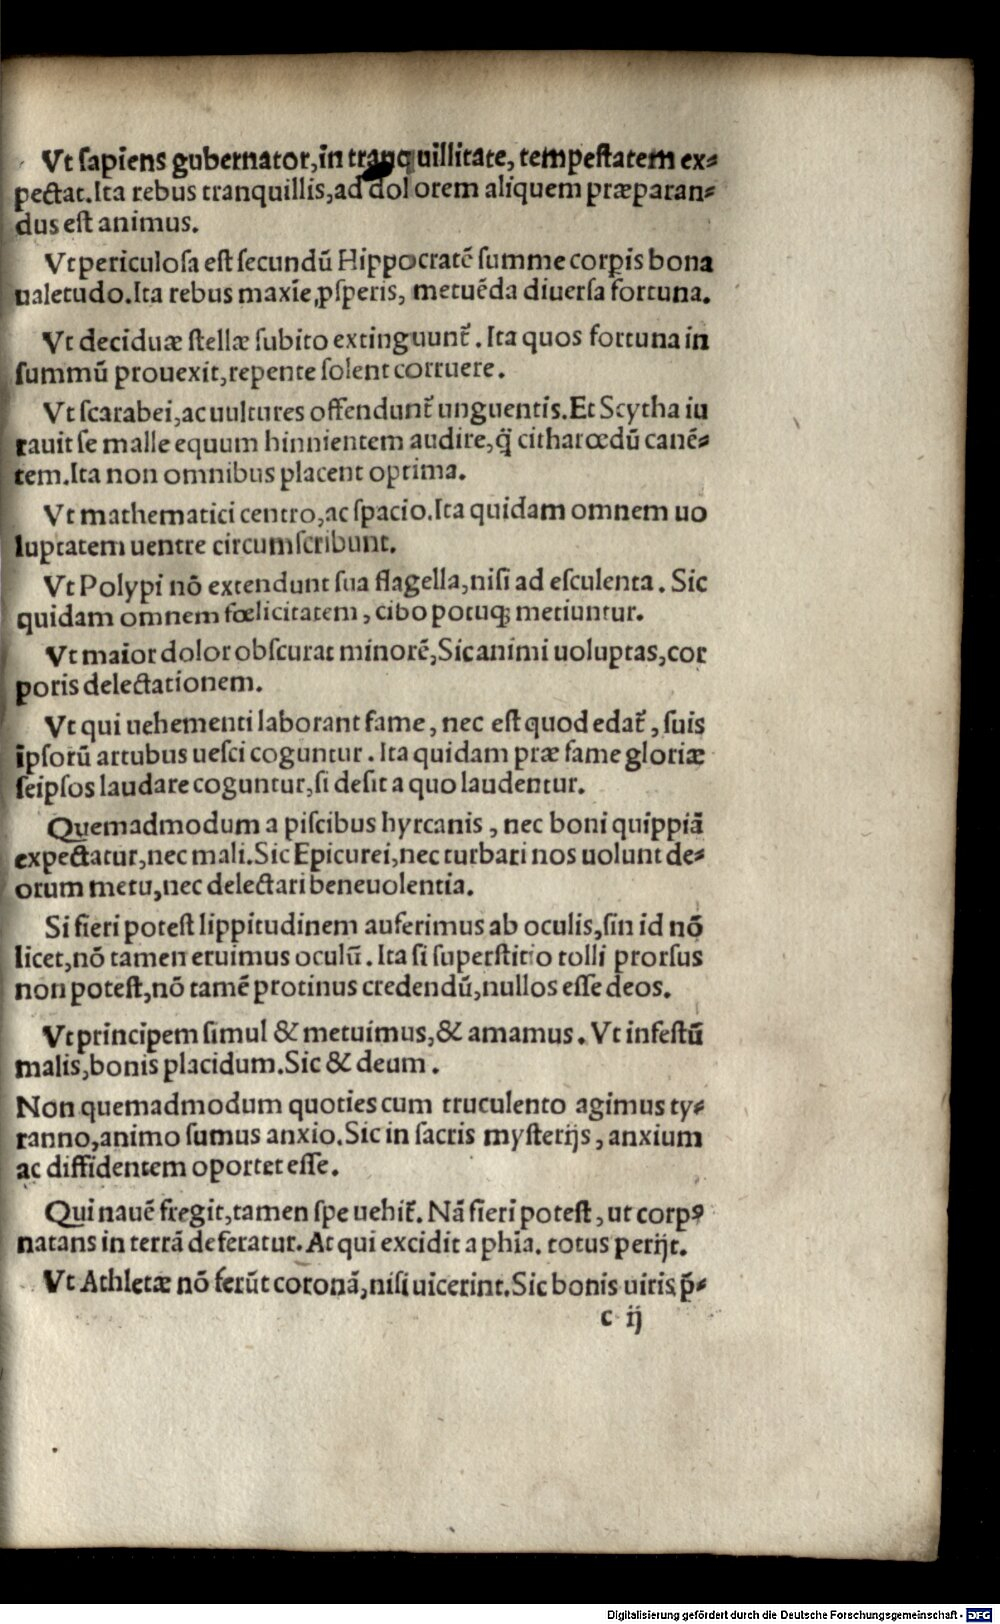 Vt sapiens gubernator, in tranquillitate, tempestatem ex⸗
pectat. Ita rebus tranquillis, ad dolorem aliquem præparan⸗
dus est animus.
Vt periculosa est secundū Hippocratē summe corpis bona
ualetudo. Ita rebus maxīe ꝓsperis, metuēda diuersa fortuna.
Vt deciduæ stellæ subito extinguunt᷑. Ita quos fortuna in
summū prouexit, repente solent corruere.
Vt scarabei, ac uultures offendunt᷑ unguentis. Et Scytha iu
rauit se malle equum hinnientem audire, q̄ citharœdū canē⸗
tem. Ita non omnibus placent optima.
Vt mathematici centro, ac spacio. Ita quidam omnem uo
luptatem uentre circumscribunt.
Vt Polypi nō extendunt sua flagella, nisi ad esculenta. Sic
quidam omnem fœlicitatem, cibo potuq; metiuntur.
Vt maior dolor obscurat minorē, Sic animi uoluptas, cor
poris delectationem.
Vt qui uehementi laborant fame, nec est quod edat᷑, suis
ipsorū artubus uesci coguntur. Ita quidam præ fame gloriæ
seipsos laudare coguntur, si desit a quo laudentur.
Quemadmodum a piscibus hyrcanis, nec boni quippiā
expectatur, nec mali. Sic Epicurei, nec turbari nos uolunt de⸗
orum metu, nec delectari beneuolentia.
Si fieri potest lippitudinem auferimus ab oculis, sin id nō
licet, nō tamen eruimus oculū. Ita si superstitio tolli prorsus
non potest, nō tamē protinus credendū, nullos esse deos.
Vt principem simul & metuimus, & amamus. Vt infestū
malis, bonis placidum. Sic & deum.
Non quemadmodum quoties cum truculento agimus ty⸗
ranno, animo sumus anxio. Sic in sacris mysterijs, anxium
ac diffidentem oportet esse.
Qui nauē fregit, tamen spe uehit᷑. Nā fieri potest, ut corpꝰ
natans in terrā deferatur. At qui excidit a phia. totus perijt.
Vt Athletæ nō ferūt coronā, nisi uicerint. Sic bonis uiris p̄⸗
c ij
Digitalisierung gefördert durch die Deutsche Forschungsgemeinschaft - DFG